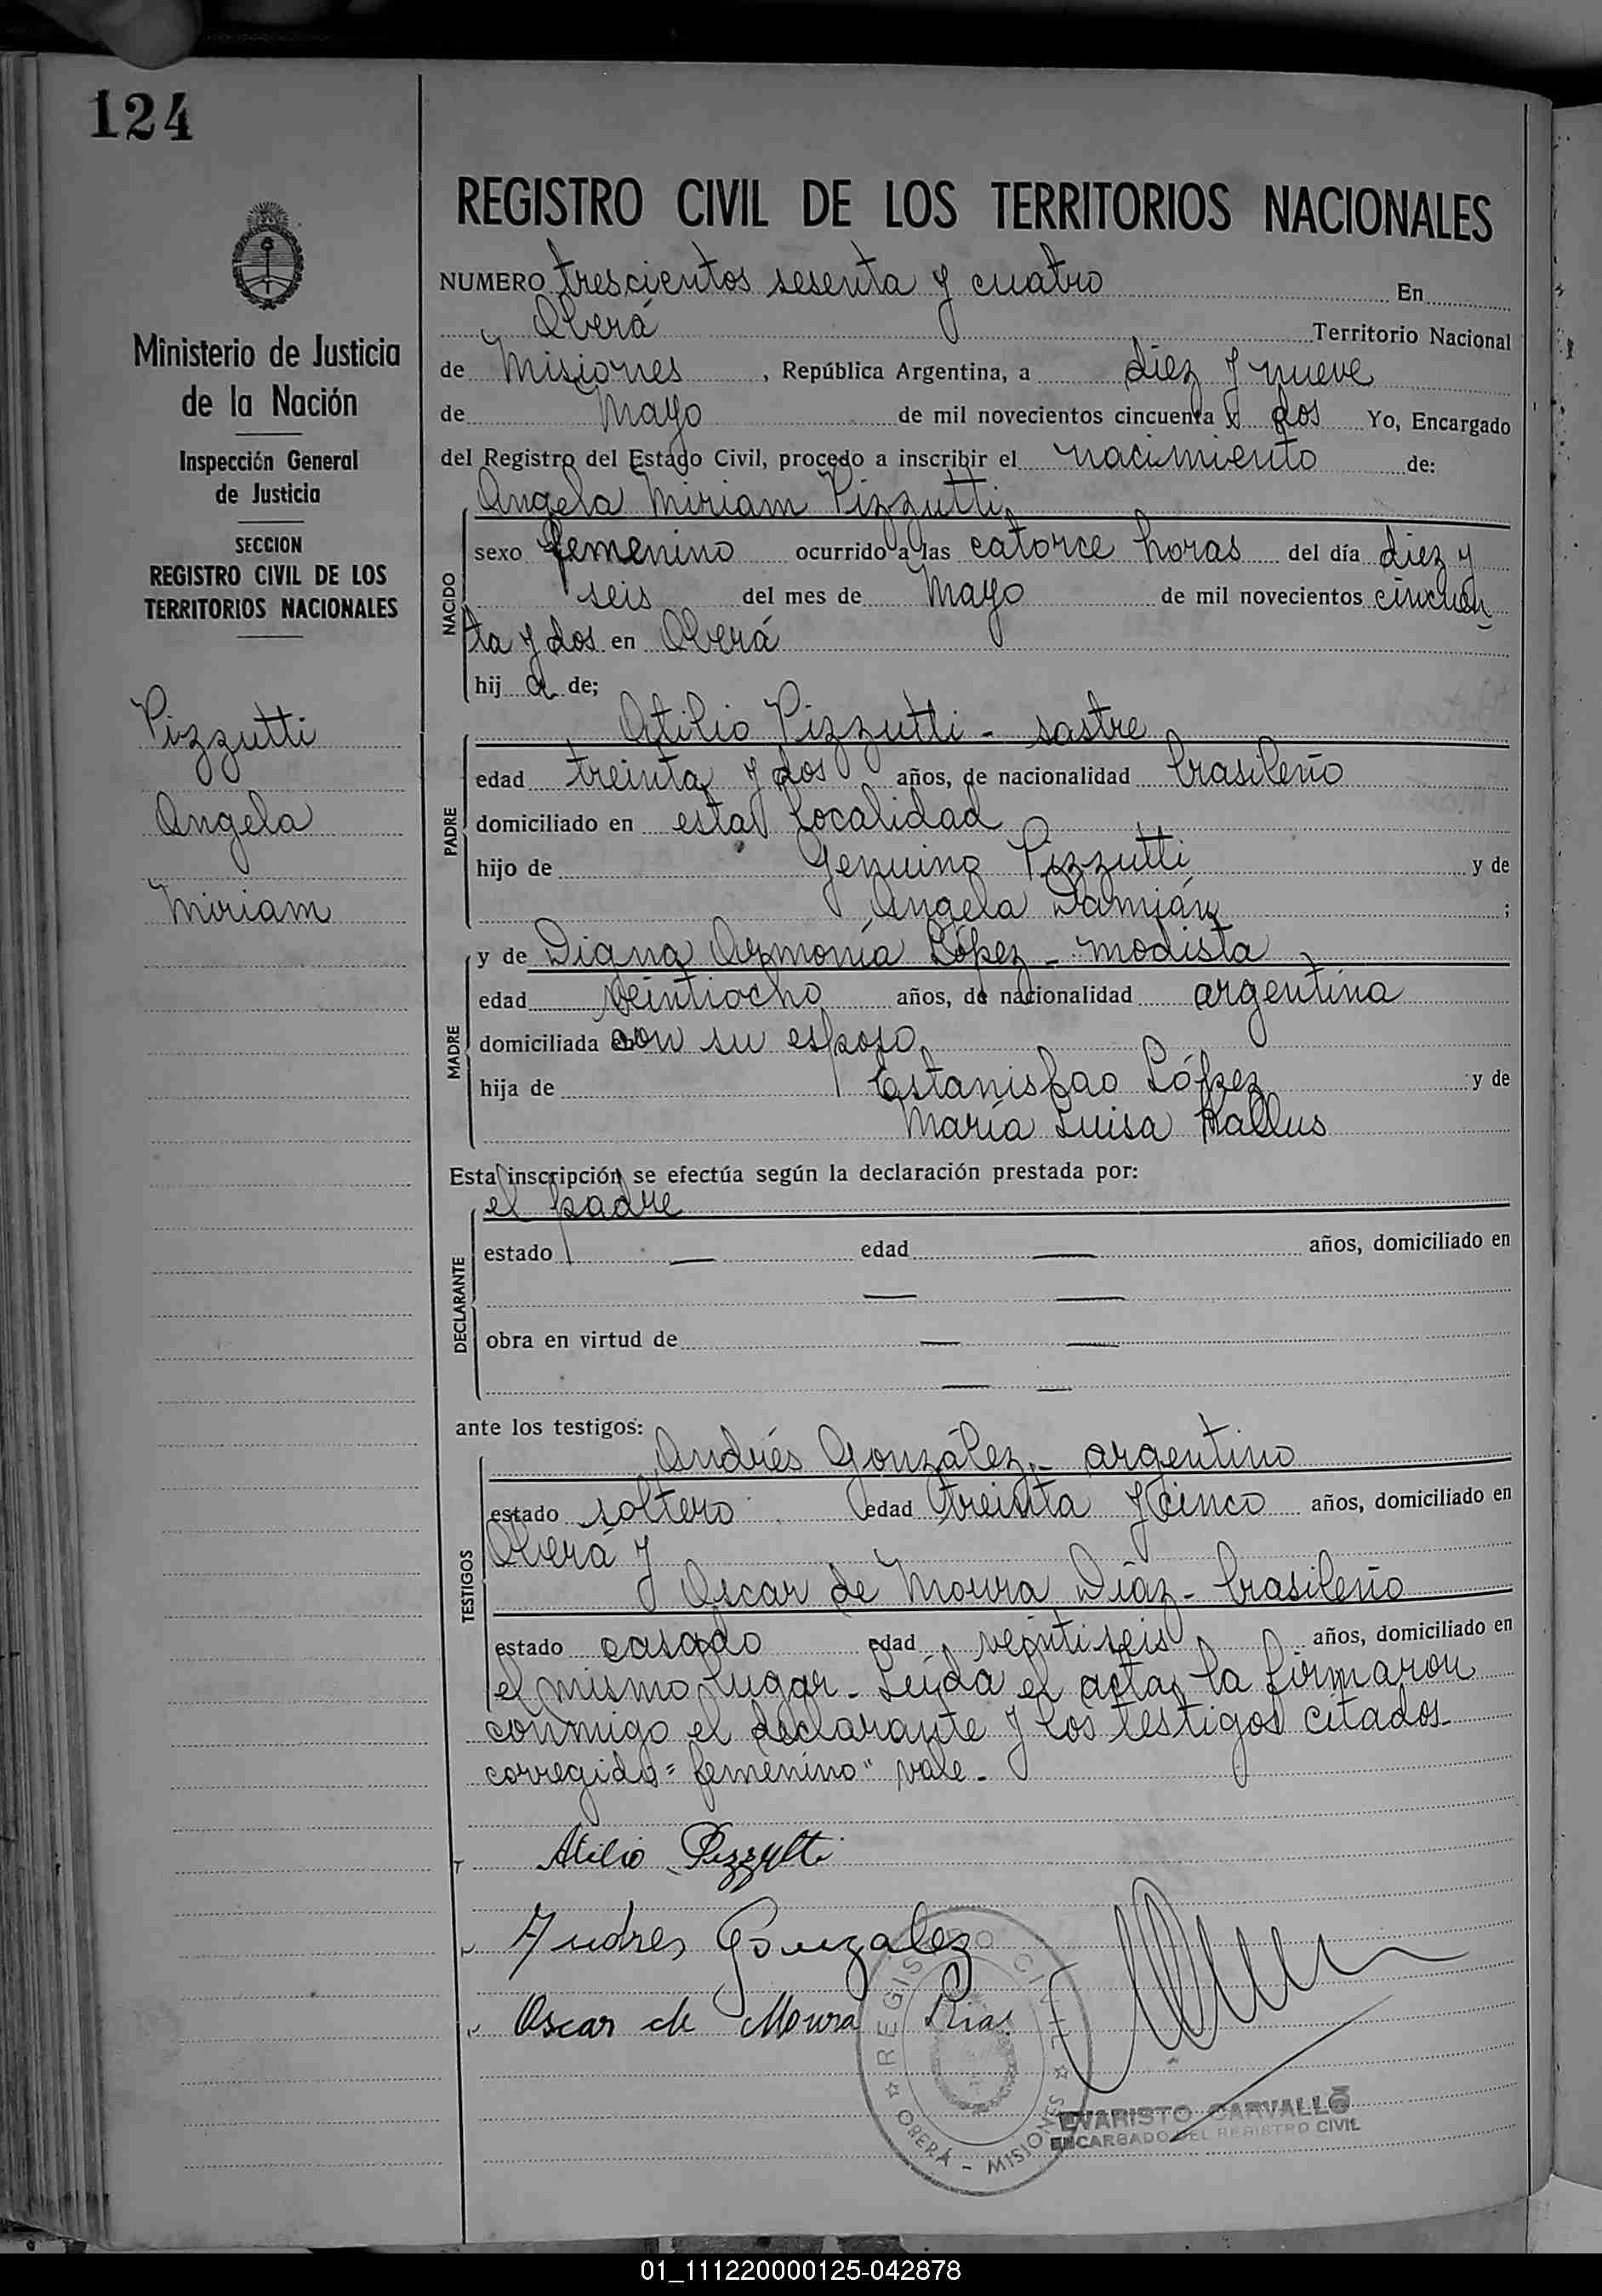 124
REGISTRO CIVIL DE LOS TERRITORIOS NACIONALES
Ministerio de Justicia
de la Nación
Inspección General
de Justicia
SECCION
REGISTRO CIVIL DE LOS
TERRITORIOS NACIONALES
Pizzutti
Angela
Miriam
NUMERO trescientos sesenta y cuatro En
Oberá Territorio Nacional
de Misiones, República Argentina, a diez y nueve
de Mayo de mil novecientos cincuenta y dos Yo, Encargado
del Registro del Estado Civil, procedo a inscribir el nacimiento de:
Angela Miriam Pizzutti
NACIDO
sexo femenino ocurrido a las catorce horas del día diez y
seis del mes de Mayo de mil novecientos cincuen
ta y dos en Oberá
hij a de;
Atilio Pizzutti - sastre
PADRE
edad treinta y dos años, de nacionalidad brasileño
domiciliado en esta localidad
hijo de Genuino Pizzutti y de
Angela Damián;
y de Diana Armonía López - modista
MADRE
edad veintiocho años, de nacionalidad argentina
domiciliada con su esposo
hija de Estanislao López y de
María Luisa
Esta inscripción se efectúa según la declaración prestada por:
el padre
DECLARANTE
estado — edad — años, domiciliado en
— —
obra en virtud de — —
— —
ante los testigos:
Andrés González - argentino
TESTIGOS
estado soltero edad treinta y cinco años, domiciliado en
Oberá y
Oscar de Moura Díaz - brasileño
estado casado edad veintiseis años, domiciliado en
el mismo lugar - Leída el acta, la firmaron
conmigo el declarante y los testigos citados -
corregido = "femenino" vale -
Atilio Pizzutti
Andres Gonzalez
Oscar de Moura Dias
REGISTRO CIVIL
OBERÁ - MISIONES
EVARISTO CARVALLO
ENCARGADO DEL REGISTRO CIVIL
01_111220000125-042878